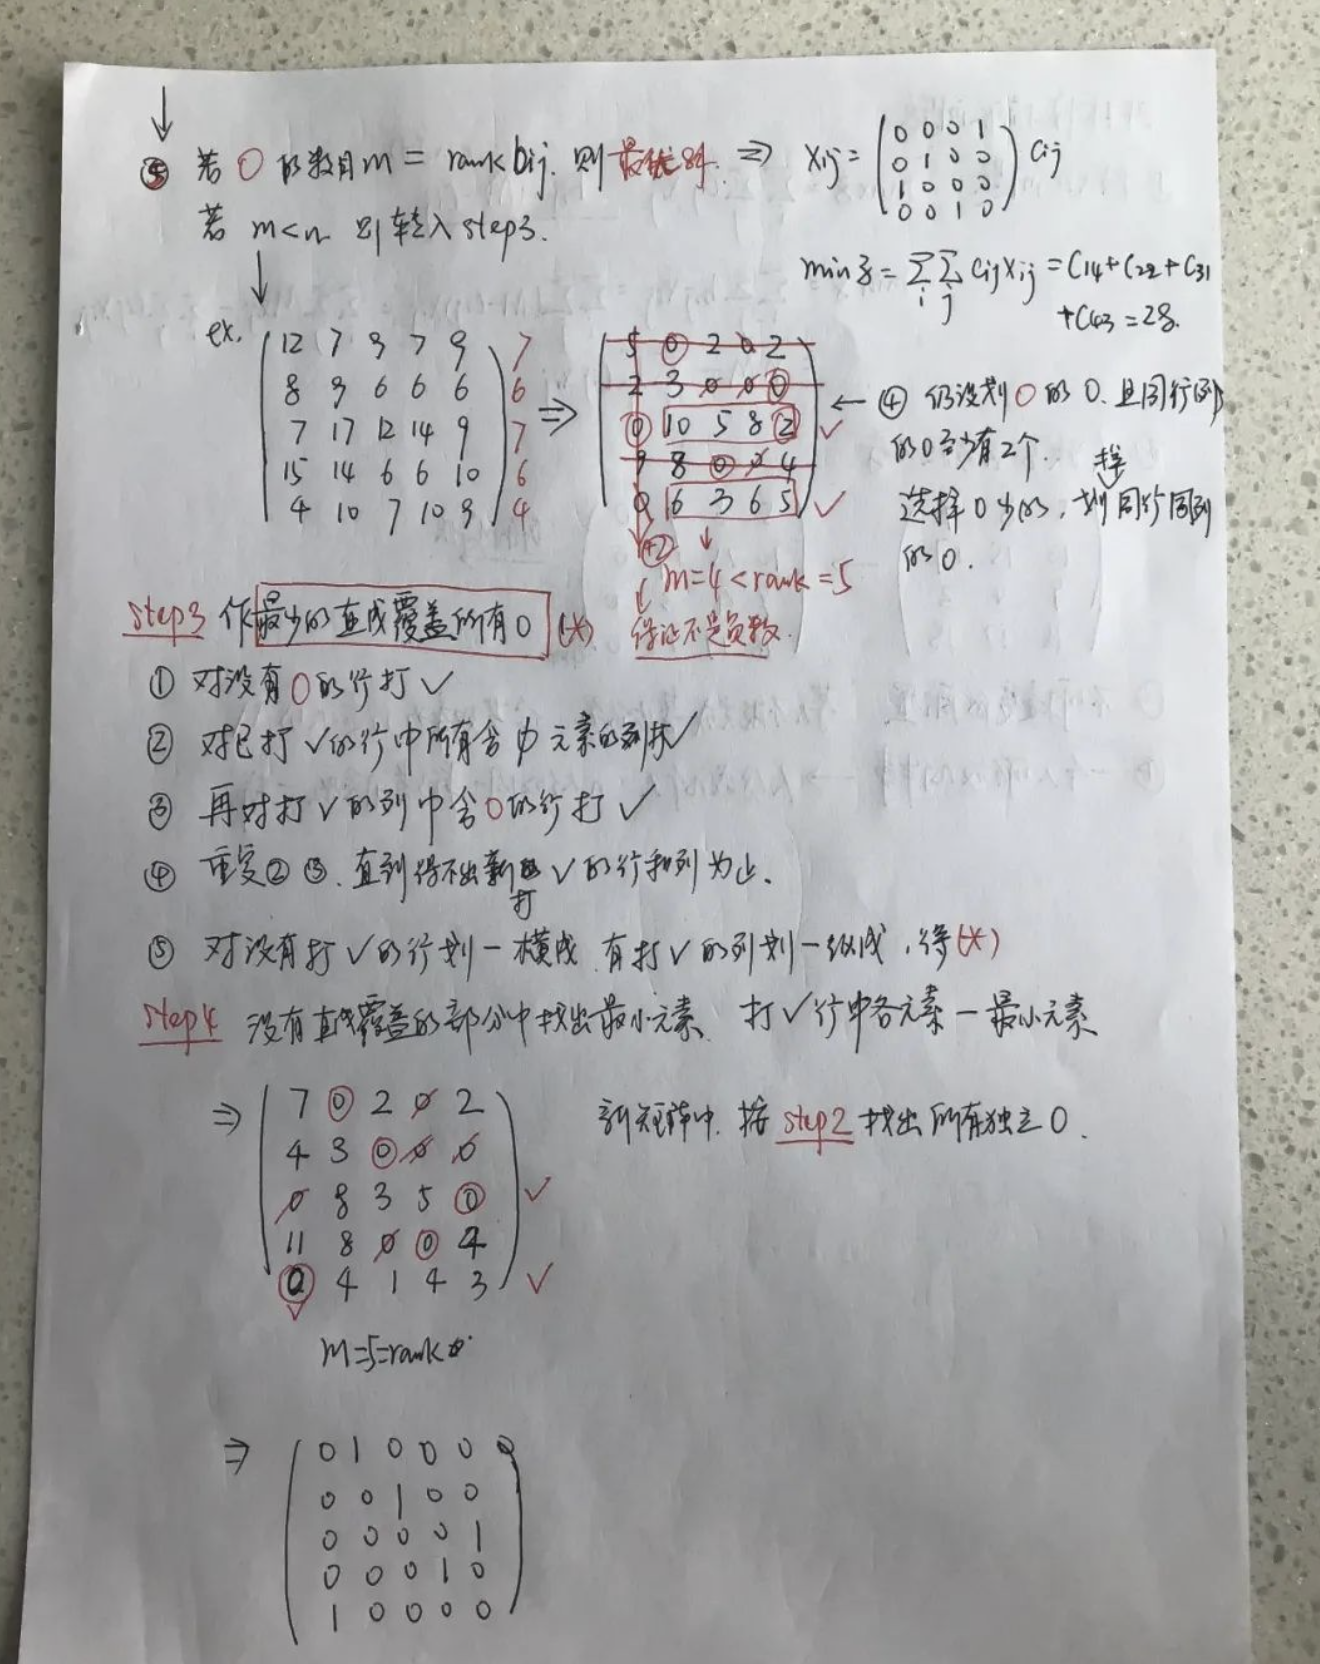 ⑤ 若 0 的数目 m = rank bij. 则最优解. ⇒ Xij = (0 0 0 1
0 1 0 0
1 0 0 0
0 0 1 0) Cij
若 m<n 则转入 step3.
min z = ∑i ∑j Cij Xij = C14 + C22 + C31
+ C43 = 28.
ex.
12 7 9 7 9 7
8 9 6 6 6 6
7 17 12 14 9 7
15 14 6 6 10 6
4 10 7 10 9 4
⇒
5 0 2 0 2
2 3 0 0 0
0 10 5 8 2 ✓
9 8 0 0 4
0 6 3 6 5 ✓
+2
m=4 < rank = 5
保证不是负数.
← ④ 仍没划 0 的 0. 且同行列
的 0 至少有 2 个.
选择 0 少的, 划同行同列
的 0.
step3 作最少的直线覆盖所有 0 (*)
① 对没有 0 的行打 ✓
② 对已打 ✓ 的行中所有含 0 元素的列打 ✓
③ 再对打 ✓ 的列中含 0 的行打 ✓
④ 重复 ② ③. 直到得不出新打 ✓ 的行和列为止.
⑤ 对没有打 ✓ 的行划一横线 有打 ✓ 的列划一纵线, 得 (*)
step4 没有直线覆盖的部分中找出最小元素、打 ✓ 行中各元素 — 最小元素
⇒
7 0 2 0 2
4 3 0 0 0
0 8 3 5 0 ✓
11 8 0 0 4
0 4 1 4 3 ✓
✓
新矩阵中. 按 step2 找出所有独立 0.
m=5=rank
⇒
0 1 0 0 0 0
0 0 1 0 0
0 0 0 0 1
0 0 0 1 0
1 0 0 0 0